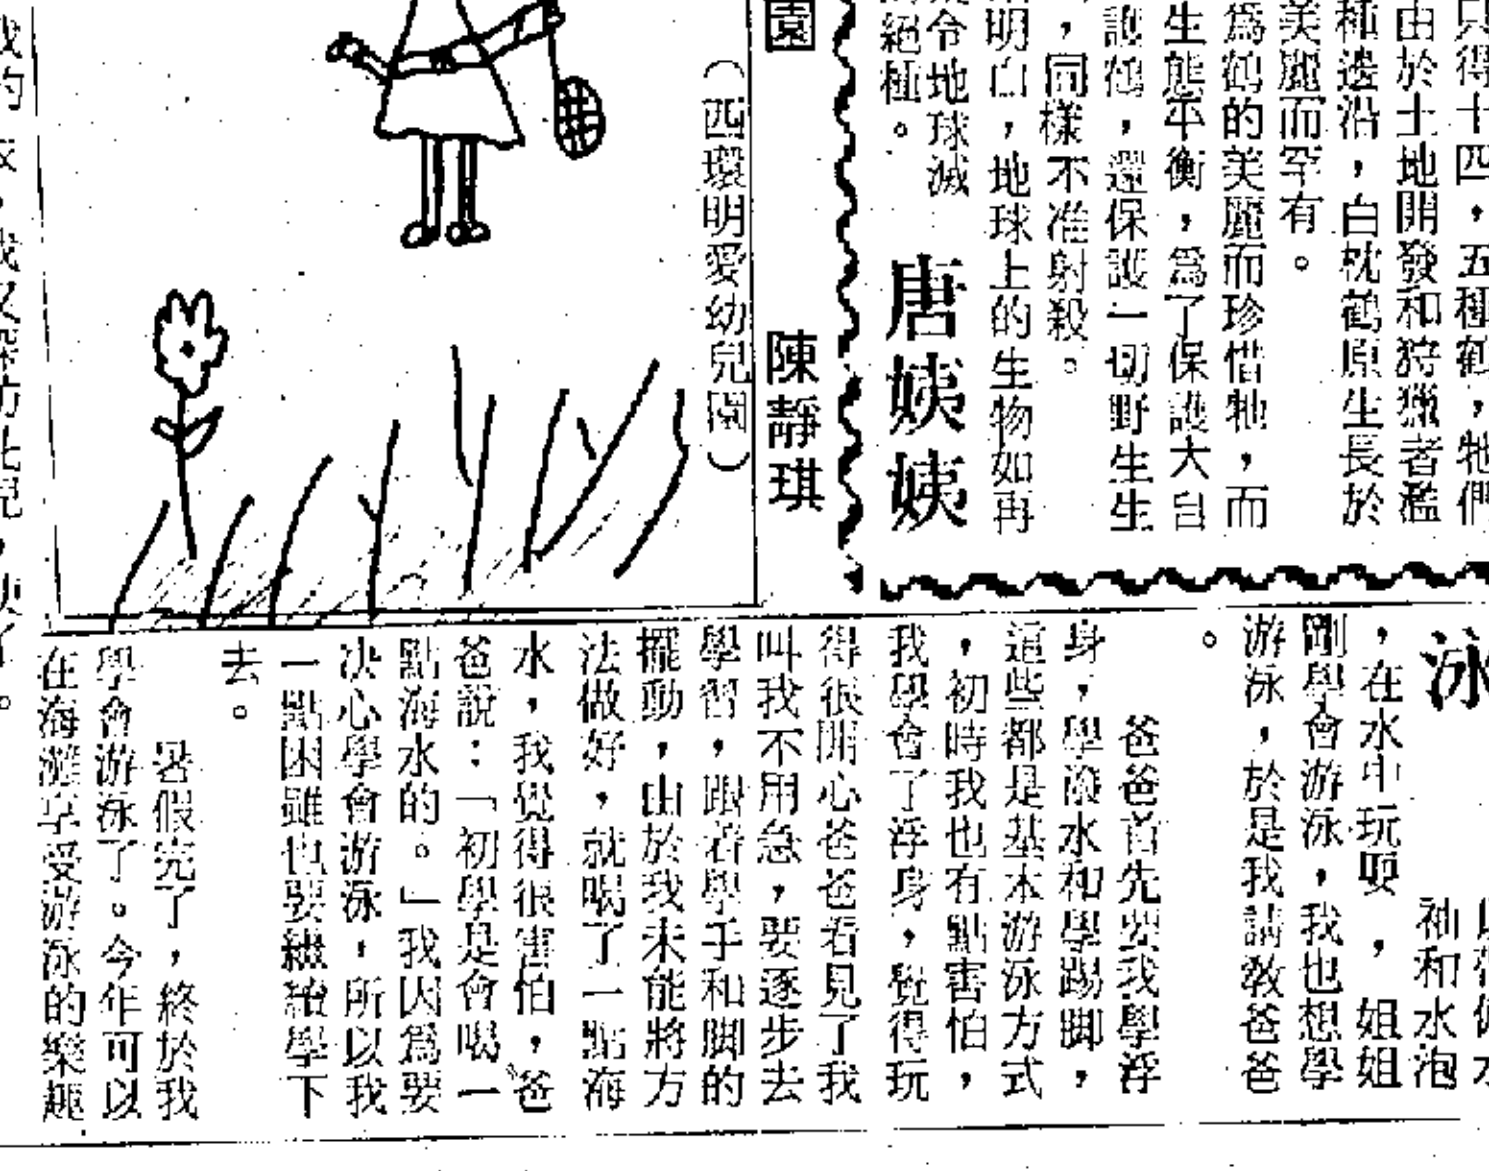 只得十四，五種鶴，牠們
由於土地開發和狩獵者濫
種邊沿，白枕鶴原生長於
美麗而罕有。
爲鶴的美麗而珍惜牠，而
生態平衡，爲了保護大自
護鶴，還保護一切野生生
，同樣不准射殺。
明白，地球上的生物如再
令地球滅
絕種。
唐姨姨
園
陳靜琪
（西環明愛幼兒園）
泳
袖和水泡
，在水中玩耍，姐姐
剛學會游泳，我也想學
游泳，於是我請教爸爸
。
爸爸首先要我學浮
身，學潑水和學踢脚，
這些都是基本游泳方式
，初時我也有點害怕，
我學會了浮身，覺得玩
得很開心爸爸看見了我
叫我不用急，要逐步去
學習，跟着學手和脚的
擺動，由於我未能將方
法做好，就喝了一點海
水，我覺得很害怕，爸
爸說：「初學是會喝一
點海水的。」我因爲要
決心學會游泳，所以我
一點困難也要繼續學下
去。
暑假完了，終於我
學會游泳了。今年可以
在海灘享受游泳的樂趣